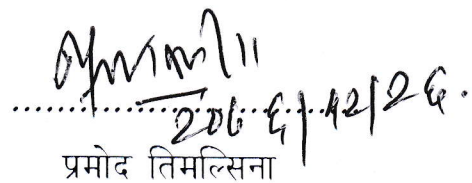 २०७६/१२/२६.
प्रमोद तिमल्सिना